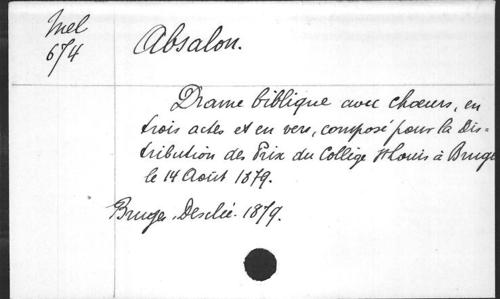 Mel
674
Absalon.
Drame biblique avec chœurs, en
trois actes et en vers, composé pour la Dis-
tribution des Prix du Collège St Louis à Bruges
le 14 Août 1879.
Bruges, Desclée. 1879.